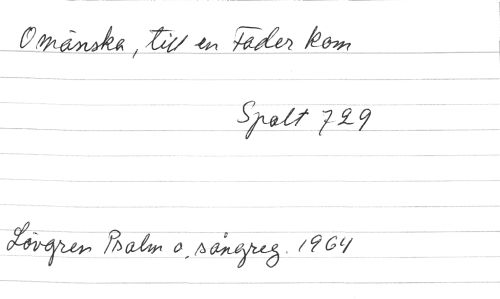 O mänska, till en Fader kom
Spalt 729
Lövgren Psalm o. sångreg. 1964